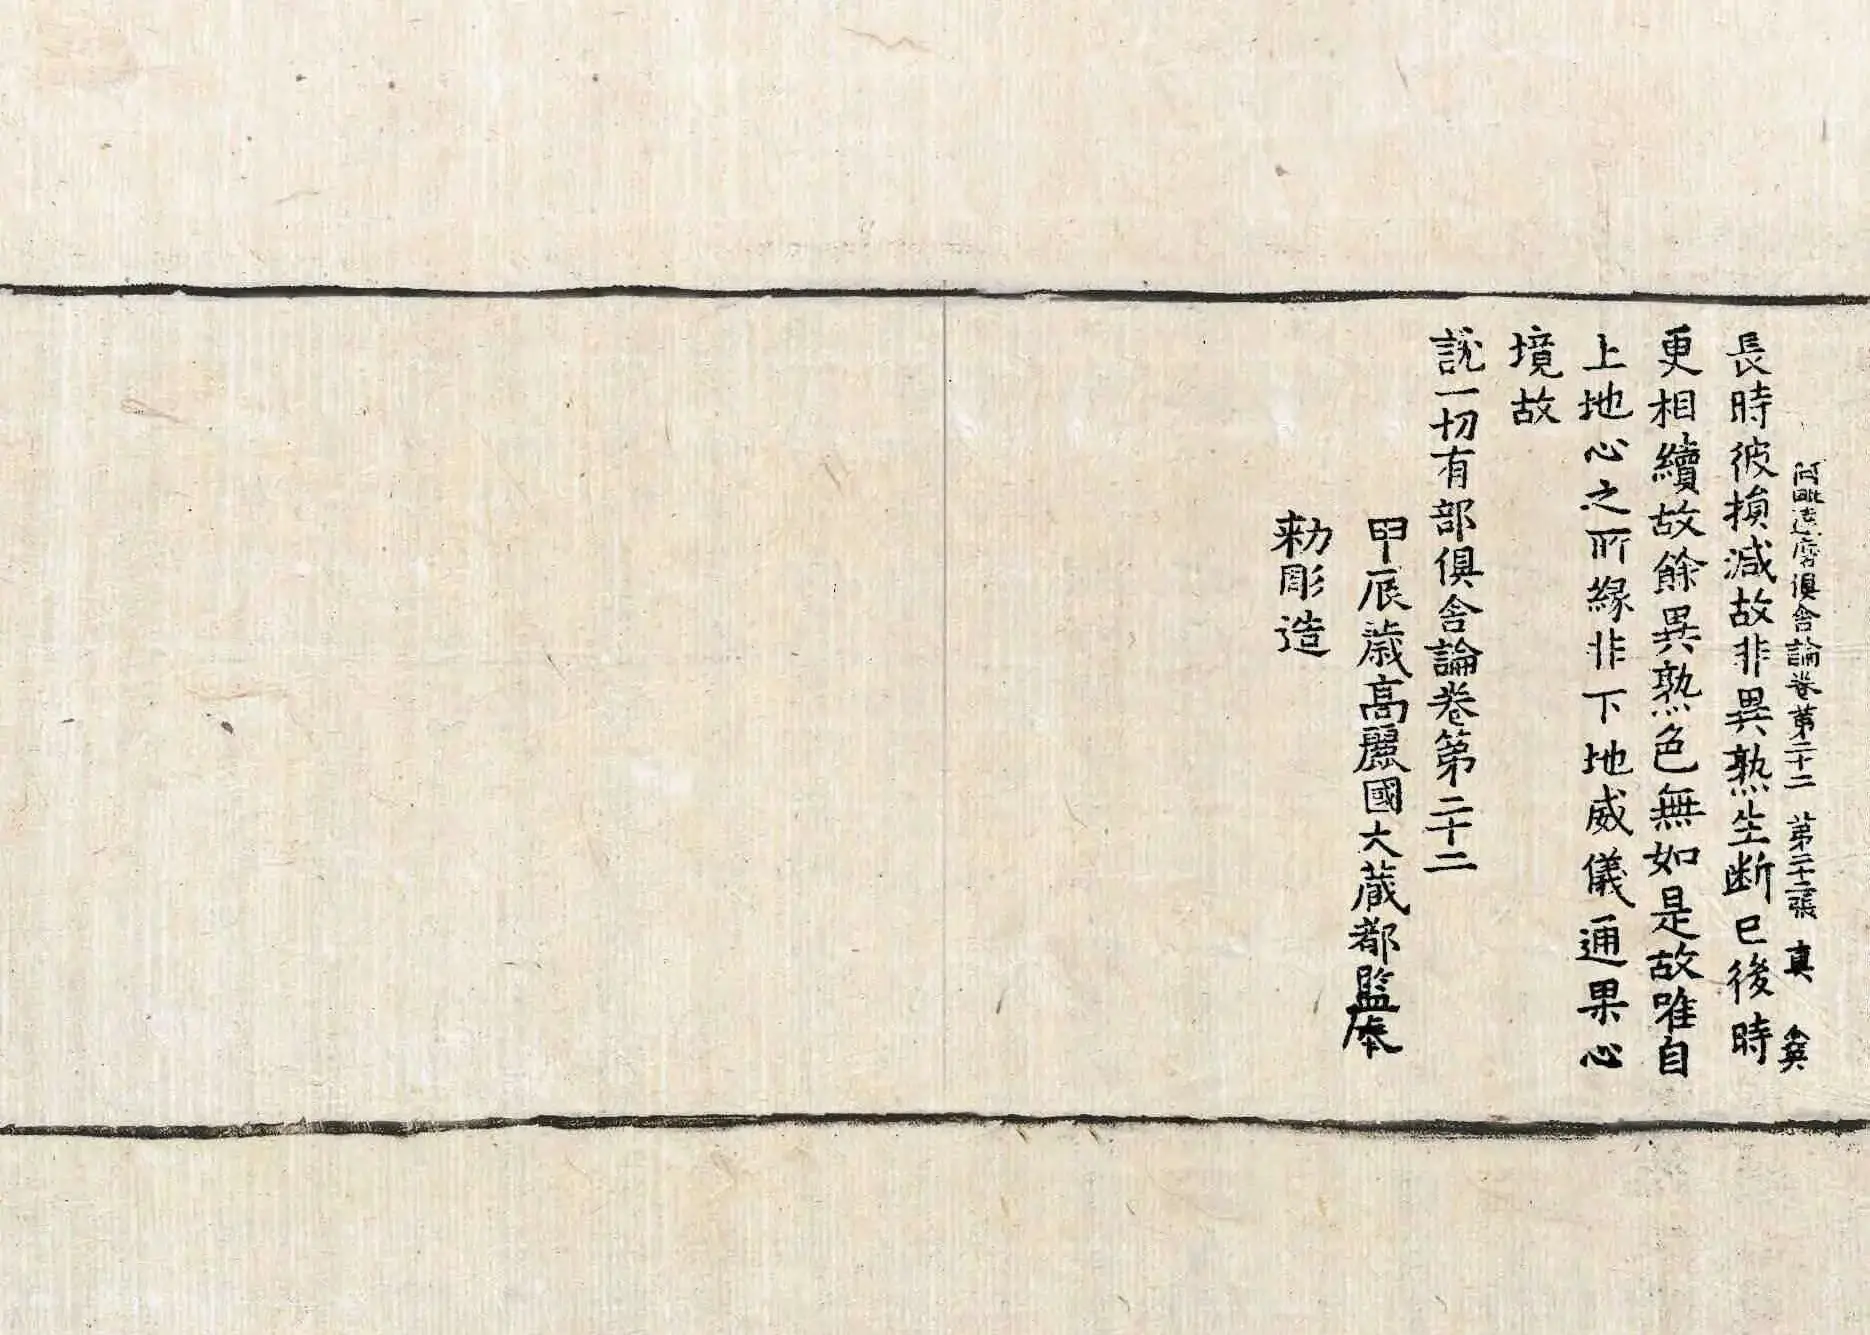 阿毗達磨俱舍論卷第二十二 第二十二張 真
長時彼損減故非異熟生断已後時
更相續故餘異熟色無如是故唯自
上地心之所緣非下地威儀通果心
境故
說一切有部俱舍論卷第二十二
甲辰歲高麗國大藏都監奉
勑彫造